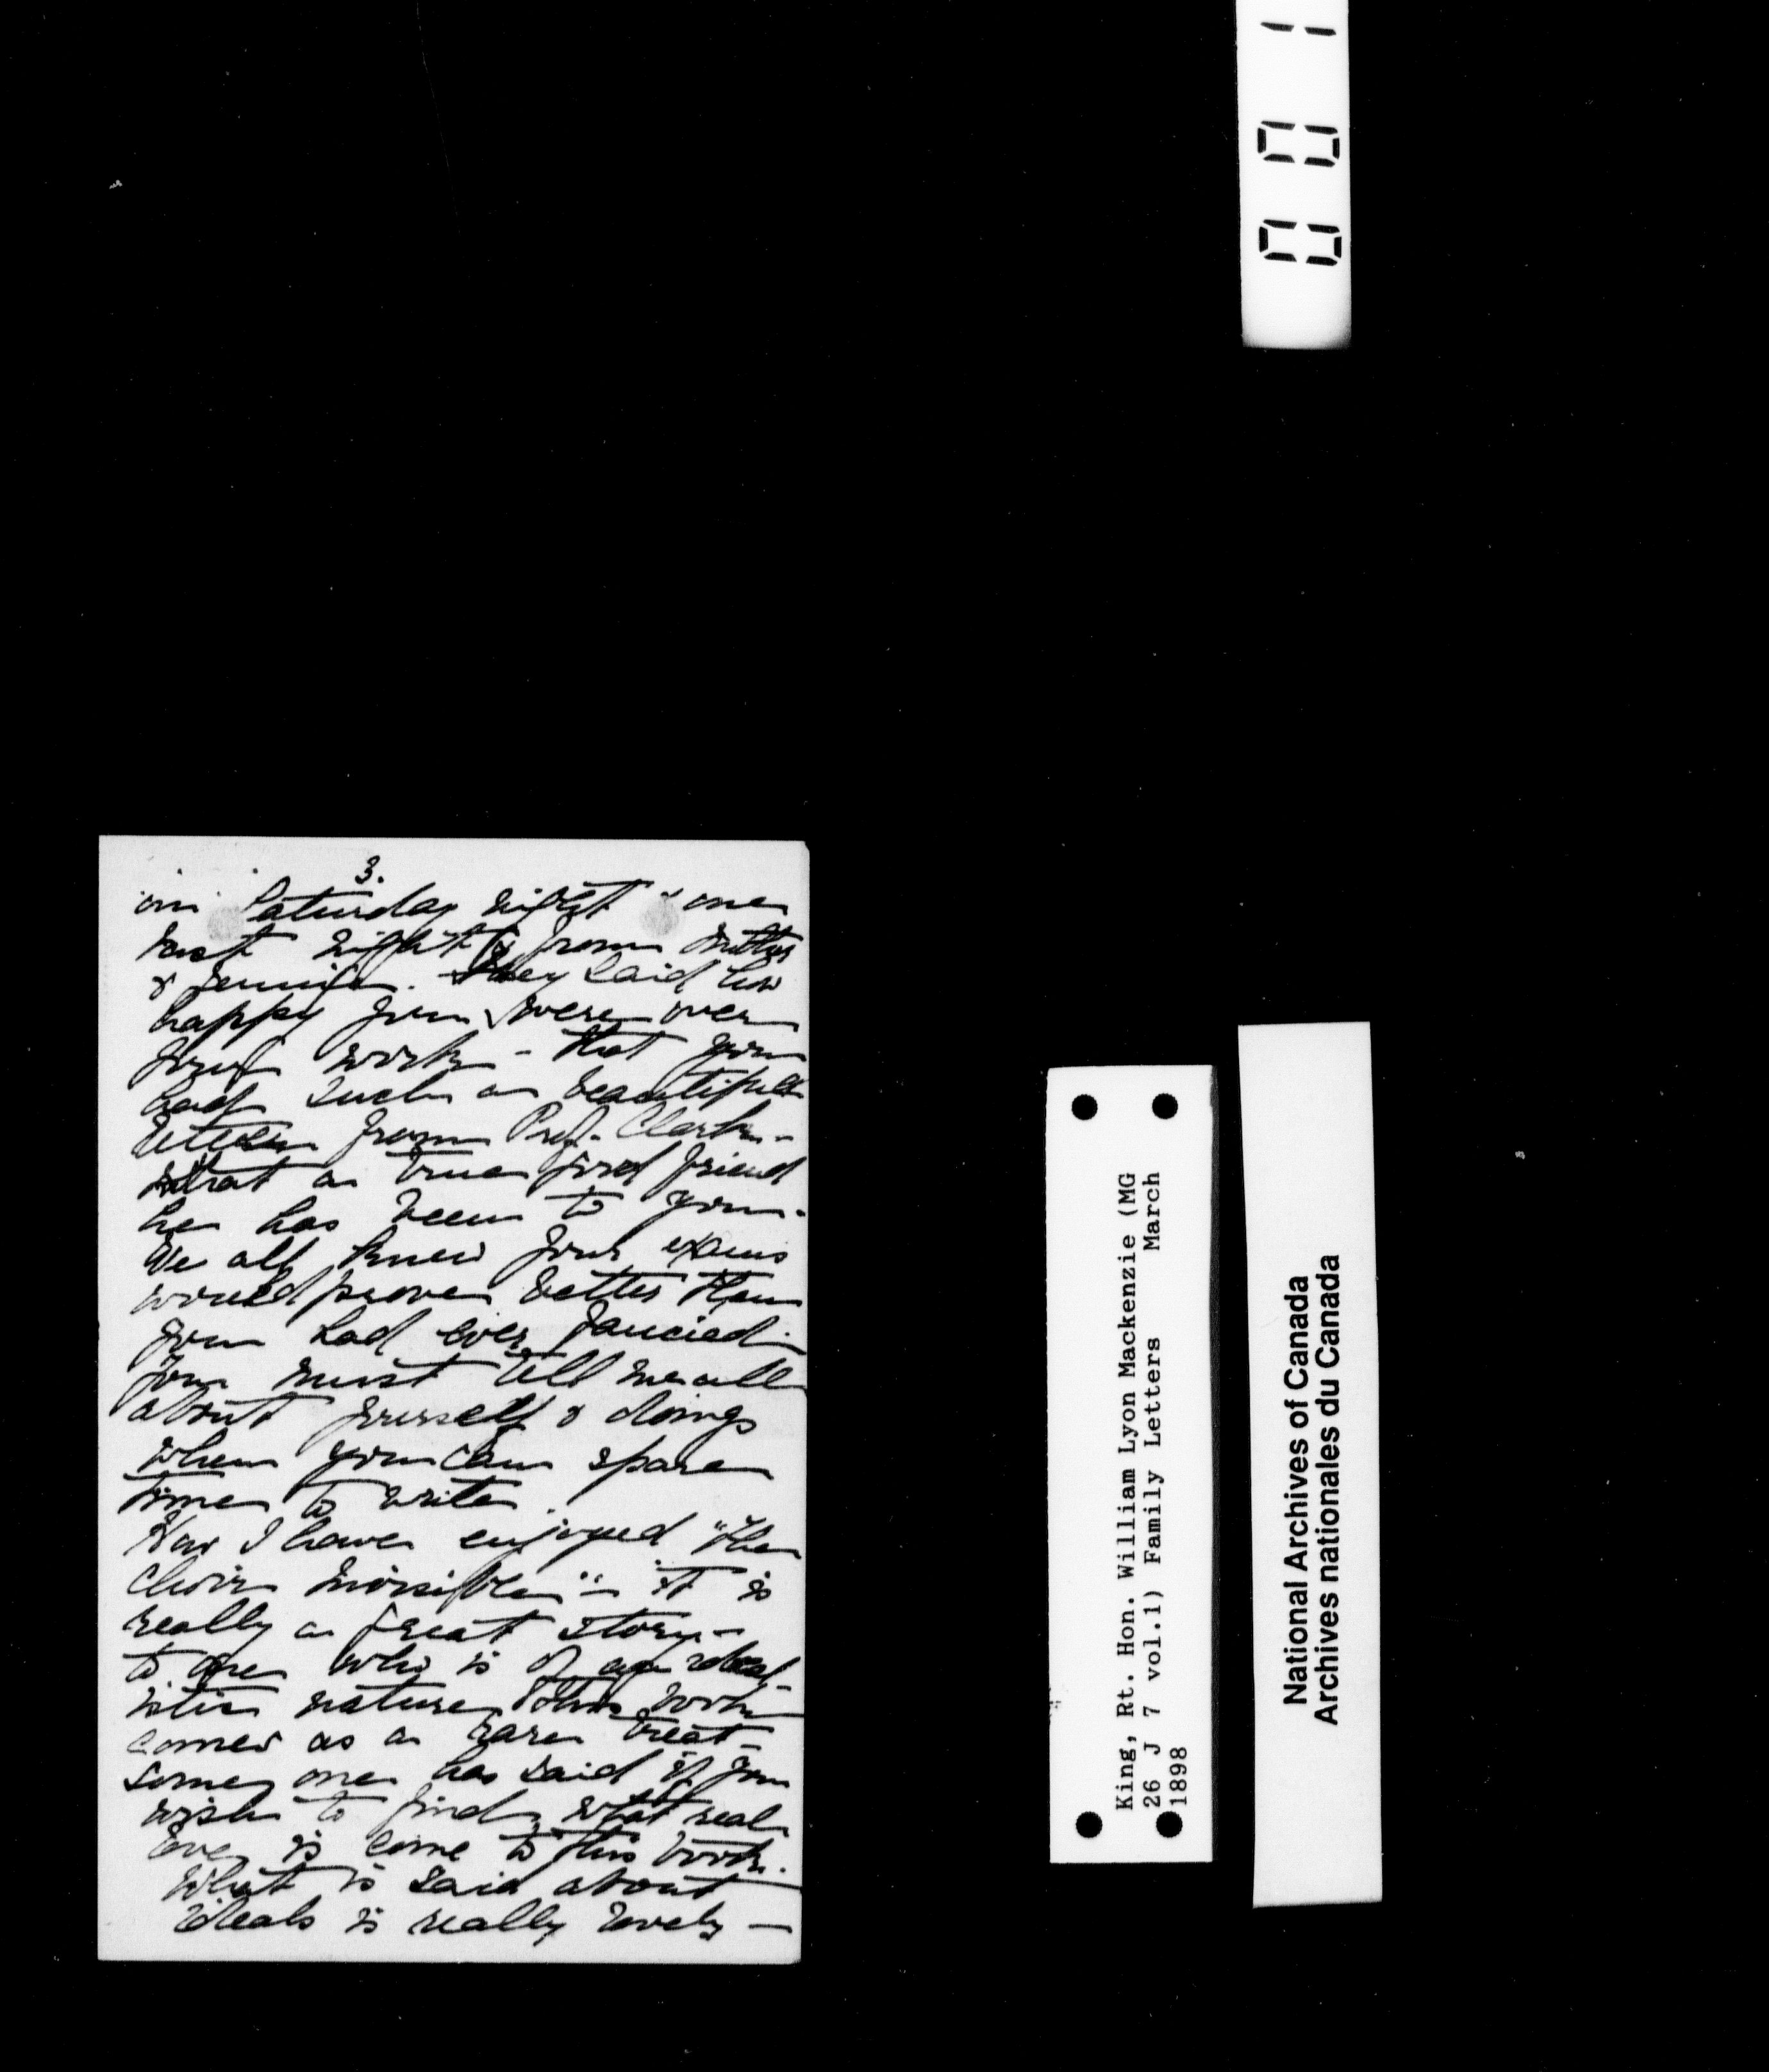 3.
on Saturday night & one
last night & from Mother
& Jennie. They said how
happy you were over
your work - that you
had such a beautiful
letter from Prof. Clark -
what a true good friend
he has been to you.
We all knew your exams
would prove better than
you had ever fancied.
You must tell me all
about yourself & doings
when you can spare
time to write.
How I have enjoyed "The
Choir Invisible" - it is
really a great story -
to one who is of a
nature this book
comes as a rare treat -
some one has said if you
wish to find what real
love is come to this book.
What is said about
ideals is really lovely -
001
King, Rt. Hon. William Lyon Mackenzie (MG
26 J 7 vol.1) Family Letters March
1898
National Archives of Canada
Archives nationales du Canada